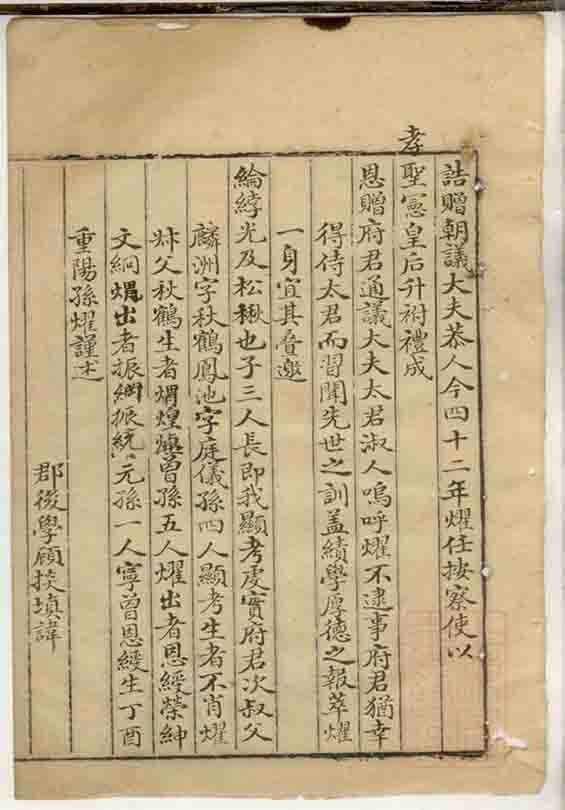 誥贈朝議大夫恭人今四十二年燿任按察使以
孝聖憲皇后升祔禮成
恩贈府君通議大夫太君淑人嗚呼燿不逮事府君猶幸
得侍太君而習聞先世之訓盖績學厚德之報萃燿
一身宜其叠邀
綸綍光及松楸也子三人長即我顯考虔實府君次叔父
麟洲字秋鶴鳳池字庭儀孫四人顯考生者不肖燿
叔父秋鶴生者煟煌 曾孫五人燿出者恩綬榮紳
文絅煟出者振綱振統元孫一人寧曾恩綬生丁酉
重陽孫燿謹述
郡後學顧掞填諱